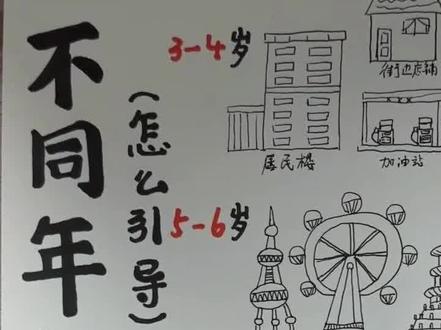 不同年
(怎么引导)
3-4岁
街边店铺
居民楼
加油站
5-6岁